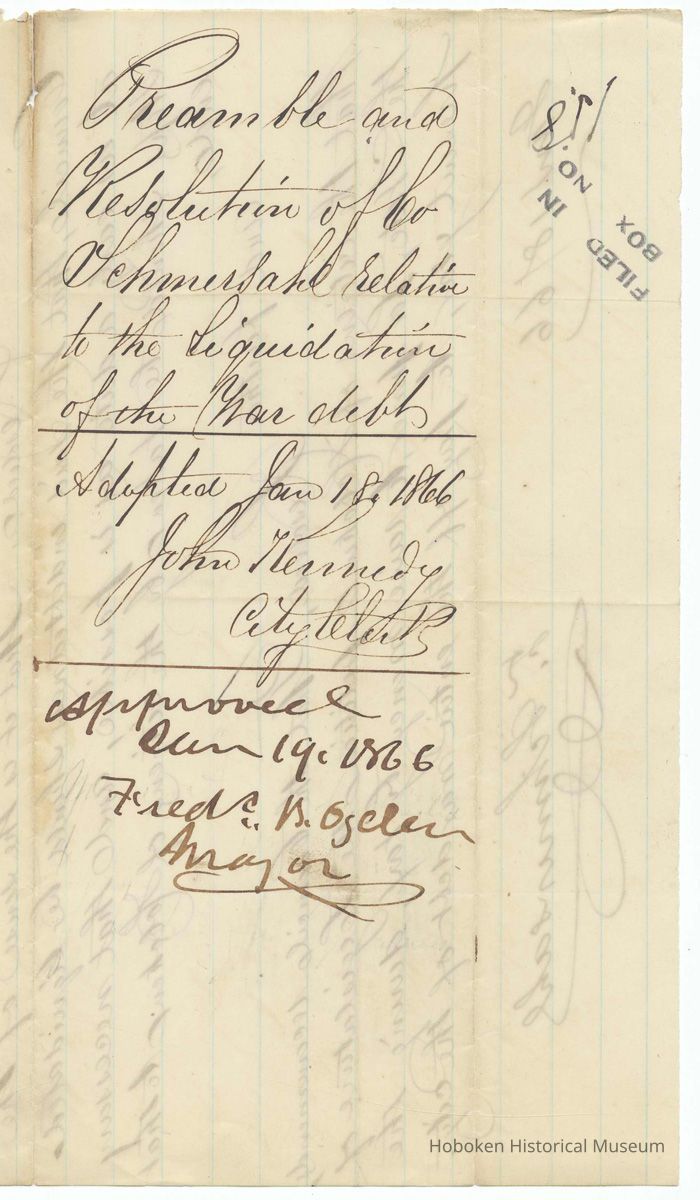 Preamble and
Resolution of Co
Schmersahl relative
to the Liquidation
of the War debt
Adopted Jan 18, 1866
John Kennedy
City Clerk
Approved
Jan 19. 1866
Fredc. B. Ogden
Mayor
FILED IN
BOX NO.
Hoboken Historical Museum